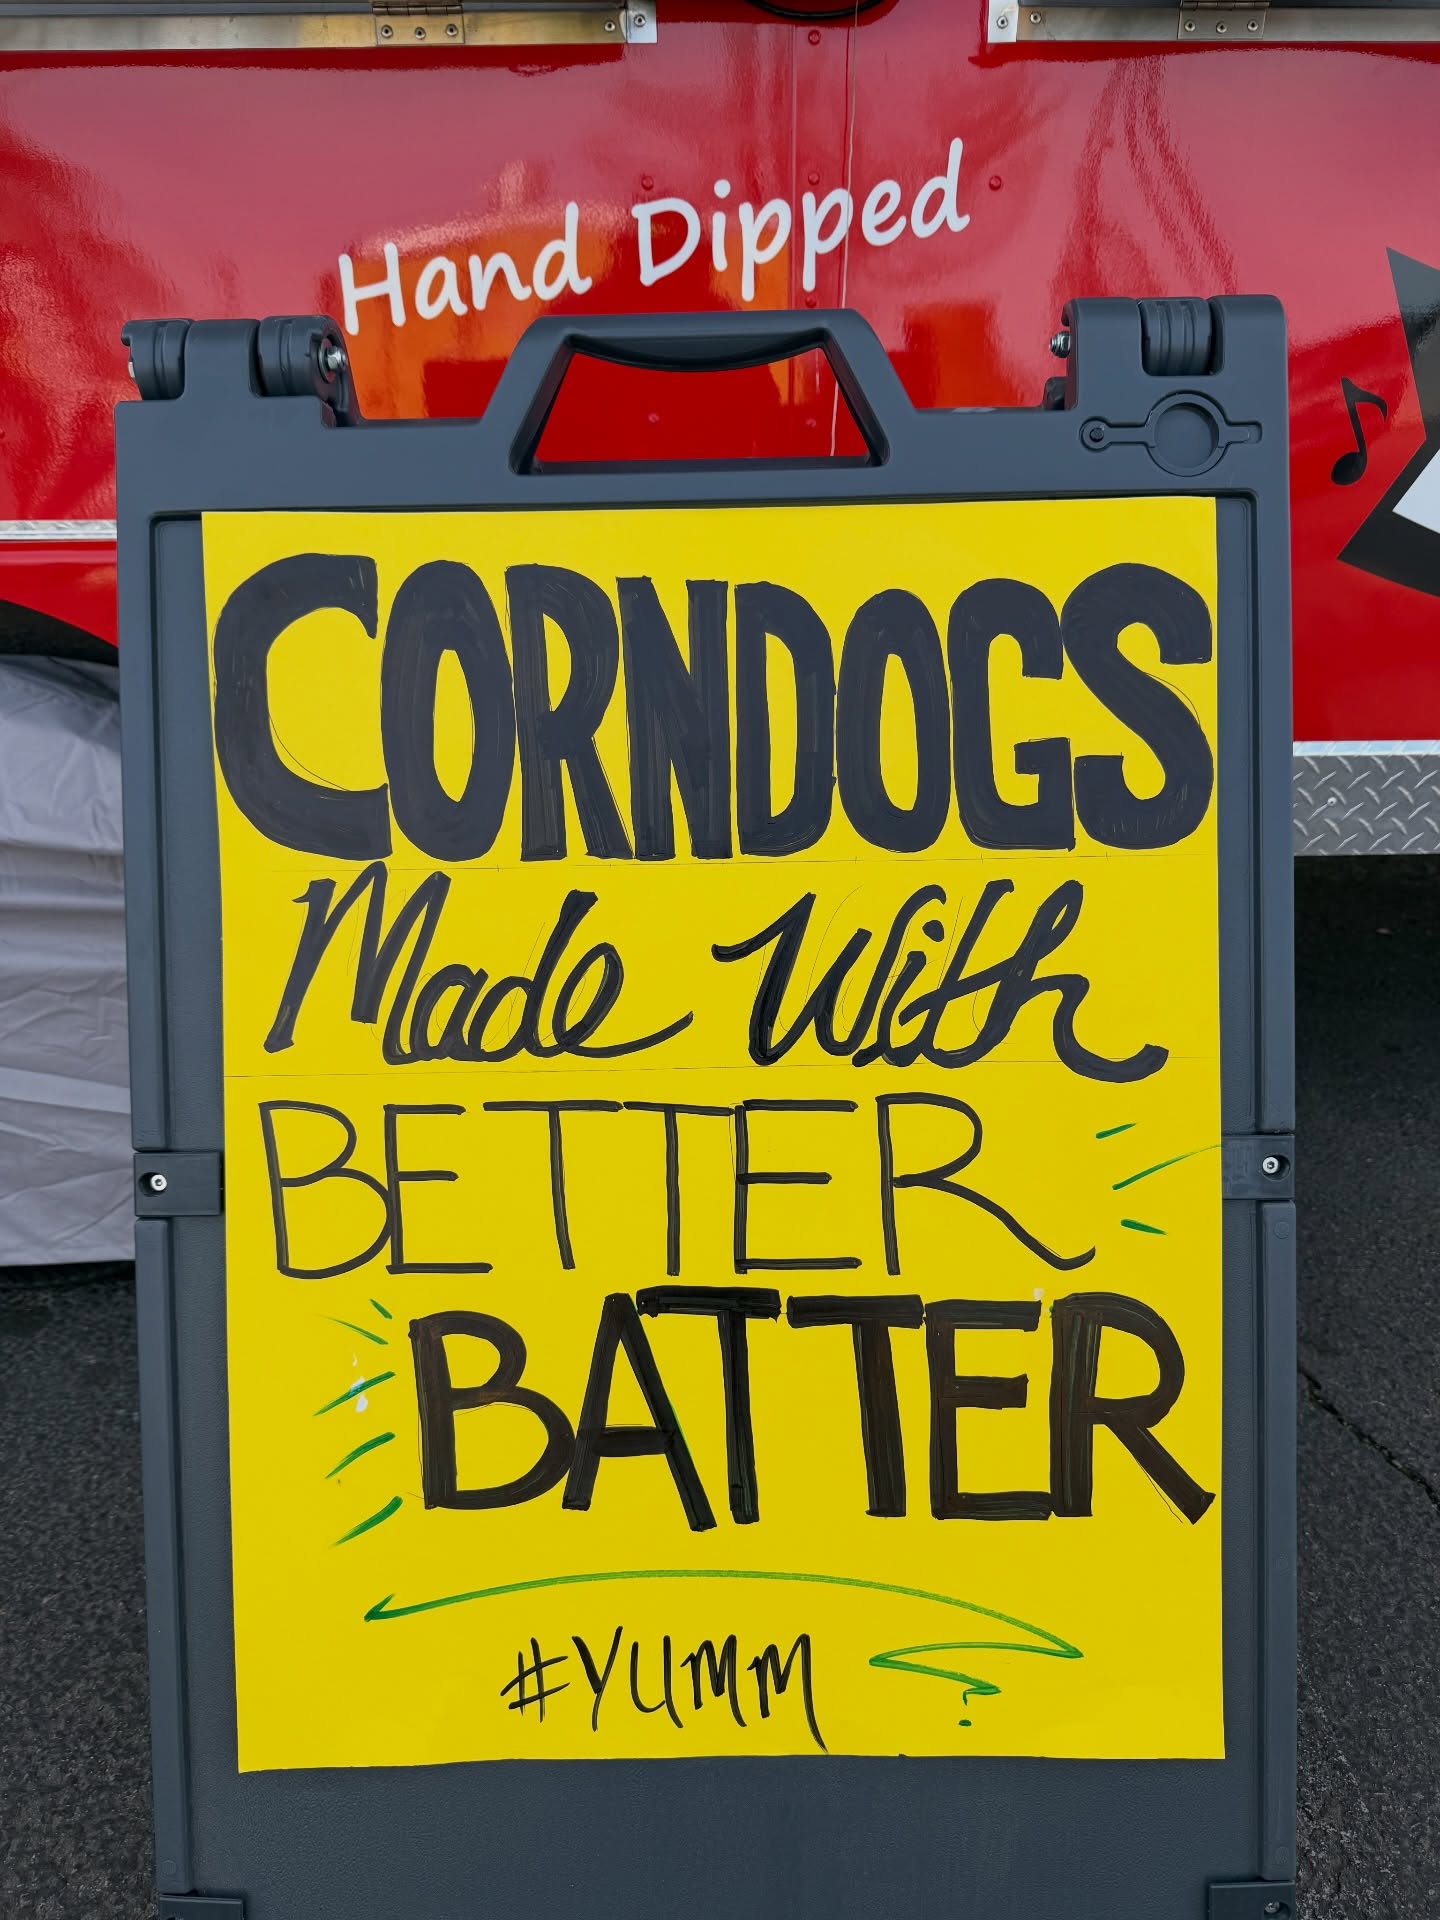 Hand Dipped
CORNDOGS
Made With
BETTER
BATTER
#YUMM